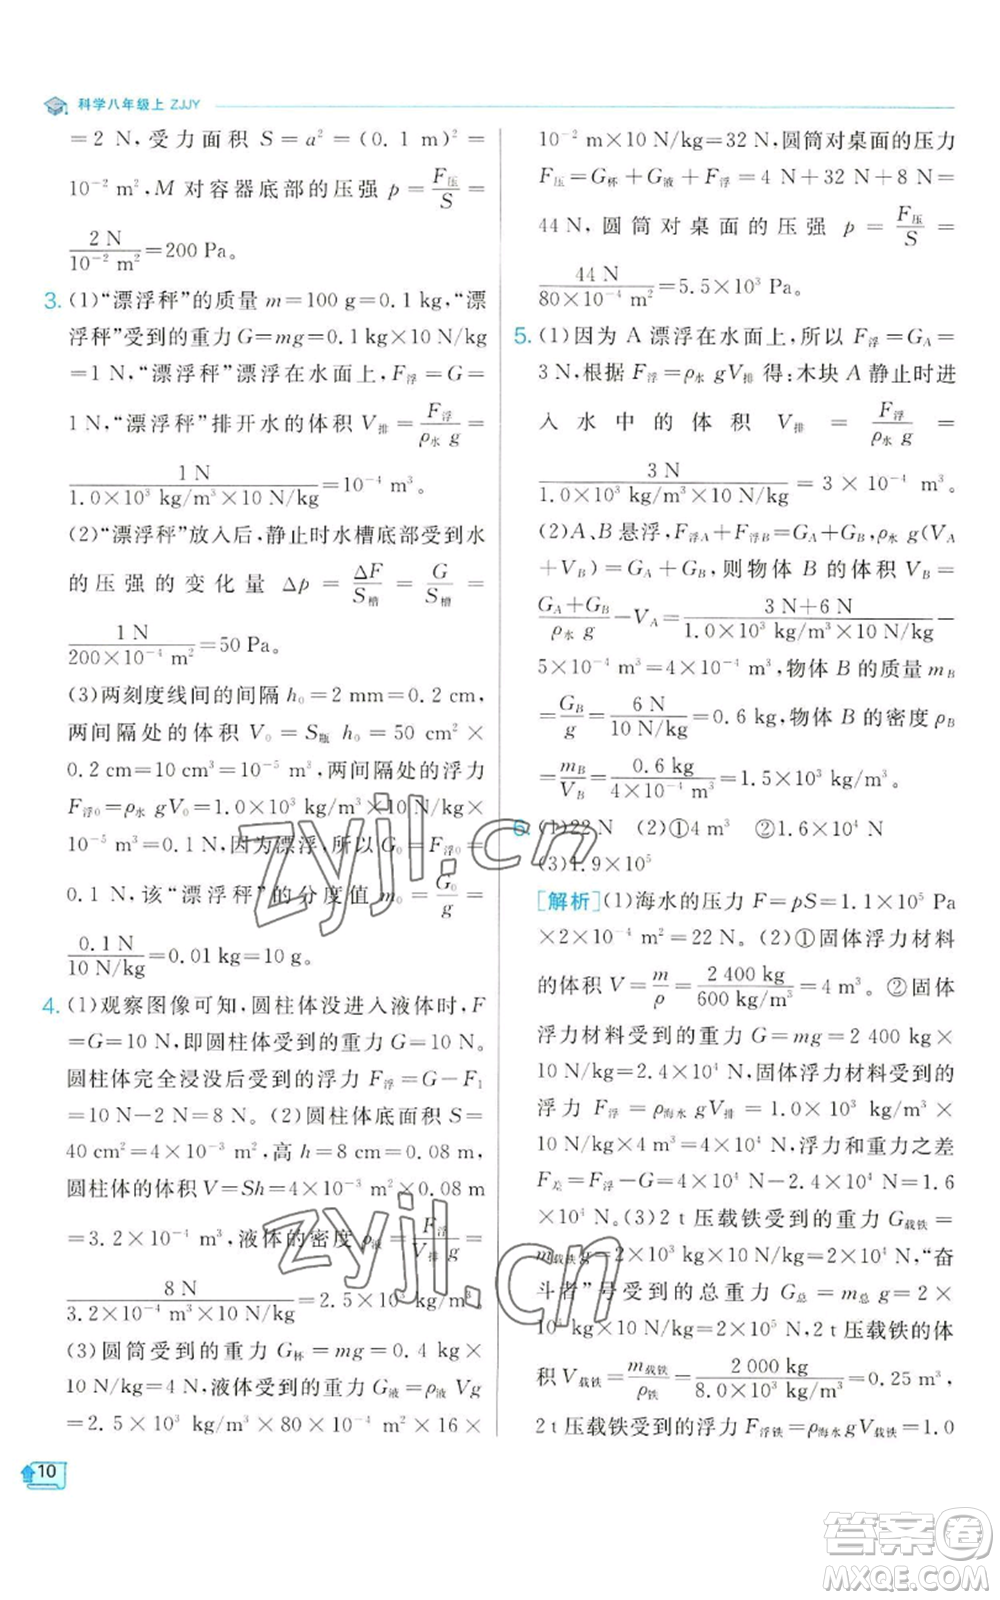 科学八年级上 ZJJY
=2 N,受力面积 S=a²=(0.1 m)²=
10⁻² m²,M 对容器底部的压强 p=F压/S=
2 N/10⁻² m²=200 Pa。
3. (1)“漂浮秤”的质量 m=100 g=0.1 kg,“漂
浮秤”受到的重力 G=mg=0.1 kg×10 N/kg
=1 N,“漂浮秤”漂浮在水面上,F浮=G=
1 N,“漂浮秤”排开水的体积 V排=F浮/ρ水 g=
1 N/1.0×10³ kg/m³×10 N/kg=10⁻⁴ m³。
(2)“漂浮秤”放入后,静止时水槽底部受到水
的压强的变化量 Δp=ΔF/S槽=G/S槽=
1 N/200×10⁻⁴ m²=50 Pa。
(3)两刻度线间的间隔 h₀=2 mm=0.2 cm,
两间隔处的体积 V₀=S瓶 h₀=50 cm²×
0.2 cm=10 cm³=10⁻⁵ m³,两间隔处的浮力
F浮₀=ρ水 gV₀=1.0×10³ kg/m³×10 N/kg×
10⁻⁵ m³=0.1 N,因为漂浮,所以 G₀=F浮₀=
0.1 N,该“漂浮秤”的分度值 m₀=G₀/g=
0.1 N/10 N/kg=0.01 kg=10 g。
4. (1)观察图像可知,圆柱体没进入液体时,F
=G=10 N,即圆柱体受到的重力 G=10 N。
圆柱体完全浸没后受到的浮力 F浮=G-F₁
=10 N-2 N=8 N。(2)圆柱体底面积 S=
40 cm²=4×10⁻³ m²,高 h=8 cm=0.08 m,
圆柱体的体积 V=Sh=4×10⁻³ m²×0.08 m
=3.2×10⁻⁴ m³,液体的密度 ρ液=F浮/V排 g=
8 N/3.2×10⁻⁴ m³×10 N/kg=2.5×10³ kg/m³。
(3)圆筒受到的重力 G杯=mg=0.4 kg×
10 N/kg=4 N,液体受到的重力 G液=ρ液 Vg
=2.5×10³ kg/m³×80×10⁻⁴ m²×16×
10⁻² m×10 N/kg=32 N,圆筒对桌面的压力
F压=G杯+G液+F浮=4 N+32 N+8 N=
44 N,圆筒对桌面的压强 p=F压/S=
44 N/80×10⁻⁴ m²=5.5×10³ Pa。
5. (1)因为 A 漂浮在水面上,所以 F浮=G_A=
3 N,根据 F浮=ρ水 gV排得:木块 A 静止时进
入水中的体积 V排=F浮/ρ水 g=
3 N/1.0×10³ kg/m³×10 N/kg=3×10⁻⁴ m³。
(2)A、B 悬浮,F浮A+F浮B=G_A+G_B,ρ水 g(V_A
+V_B)=G_A+G_B,则物体 B 的体积 V_B=
G_A+G_B/ρ水 g-V_A=3 N+6 N/1.0×10³ kg/m³×10 N/kg-
5×10⁻⁴ m³=4×10⁻⁴ m³,物体 B 的质量 m_B
=G_B/g=6 N/10 N/kg=0.6 kg,物体 B 的密度 ρ_B
=m_B/V_B=0.6 kg/4×10⁻⁴ m³=1.5×10³ kg/m³。
6. (1)22 N (2)①4 m³ ②1.6×10⁴ N
(3)1.9×10⁵
[解析](1)海水的压力 F=pS=1.1×10⁵ Pa
×2×10⁻⁴ m²=22 N。(2)①固体浮力材料
的体积 V=m/ρ=2 400 kg/600 kg/m³=4 m³。②固体
浮力材料受到的重力 G=mg=2 400 kg×
10 N/kg=2.4×10⁴ N,固体浮力材料受到的
浮力 F浮=ρ海水 gV排=1.0×10³ kg/m³×10 N/
kg×4 m³=4×10⁴ N,浮力和重力之差
F差=F浮-G=4×10⁴ N-2.4×10⁴ N=1.6
×10⁴ N。(3)2 t压载铁受到的重力 G载铁=
m载铁g=2×10³ kg×10 N/kg=2×10⁴ N,“奋
斗者”号受到的总重力 G总=m总g=2×
10⁴ kg×10 N/kg=2×10⁵ N,2 t压载铁的体
积 V载铁=m载铁/ρ铁=2 000 kg/8.0×10³ kg/m³=0.25 m³,
2 t压载铁受到的浮力 F浮铁=ρ海水 gV载铁=1.0
10
zyjl.cn
zyjl.cn
答案圈
MXQE.COM